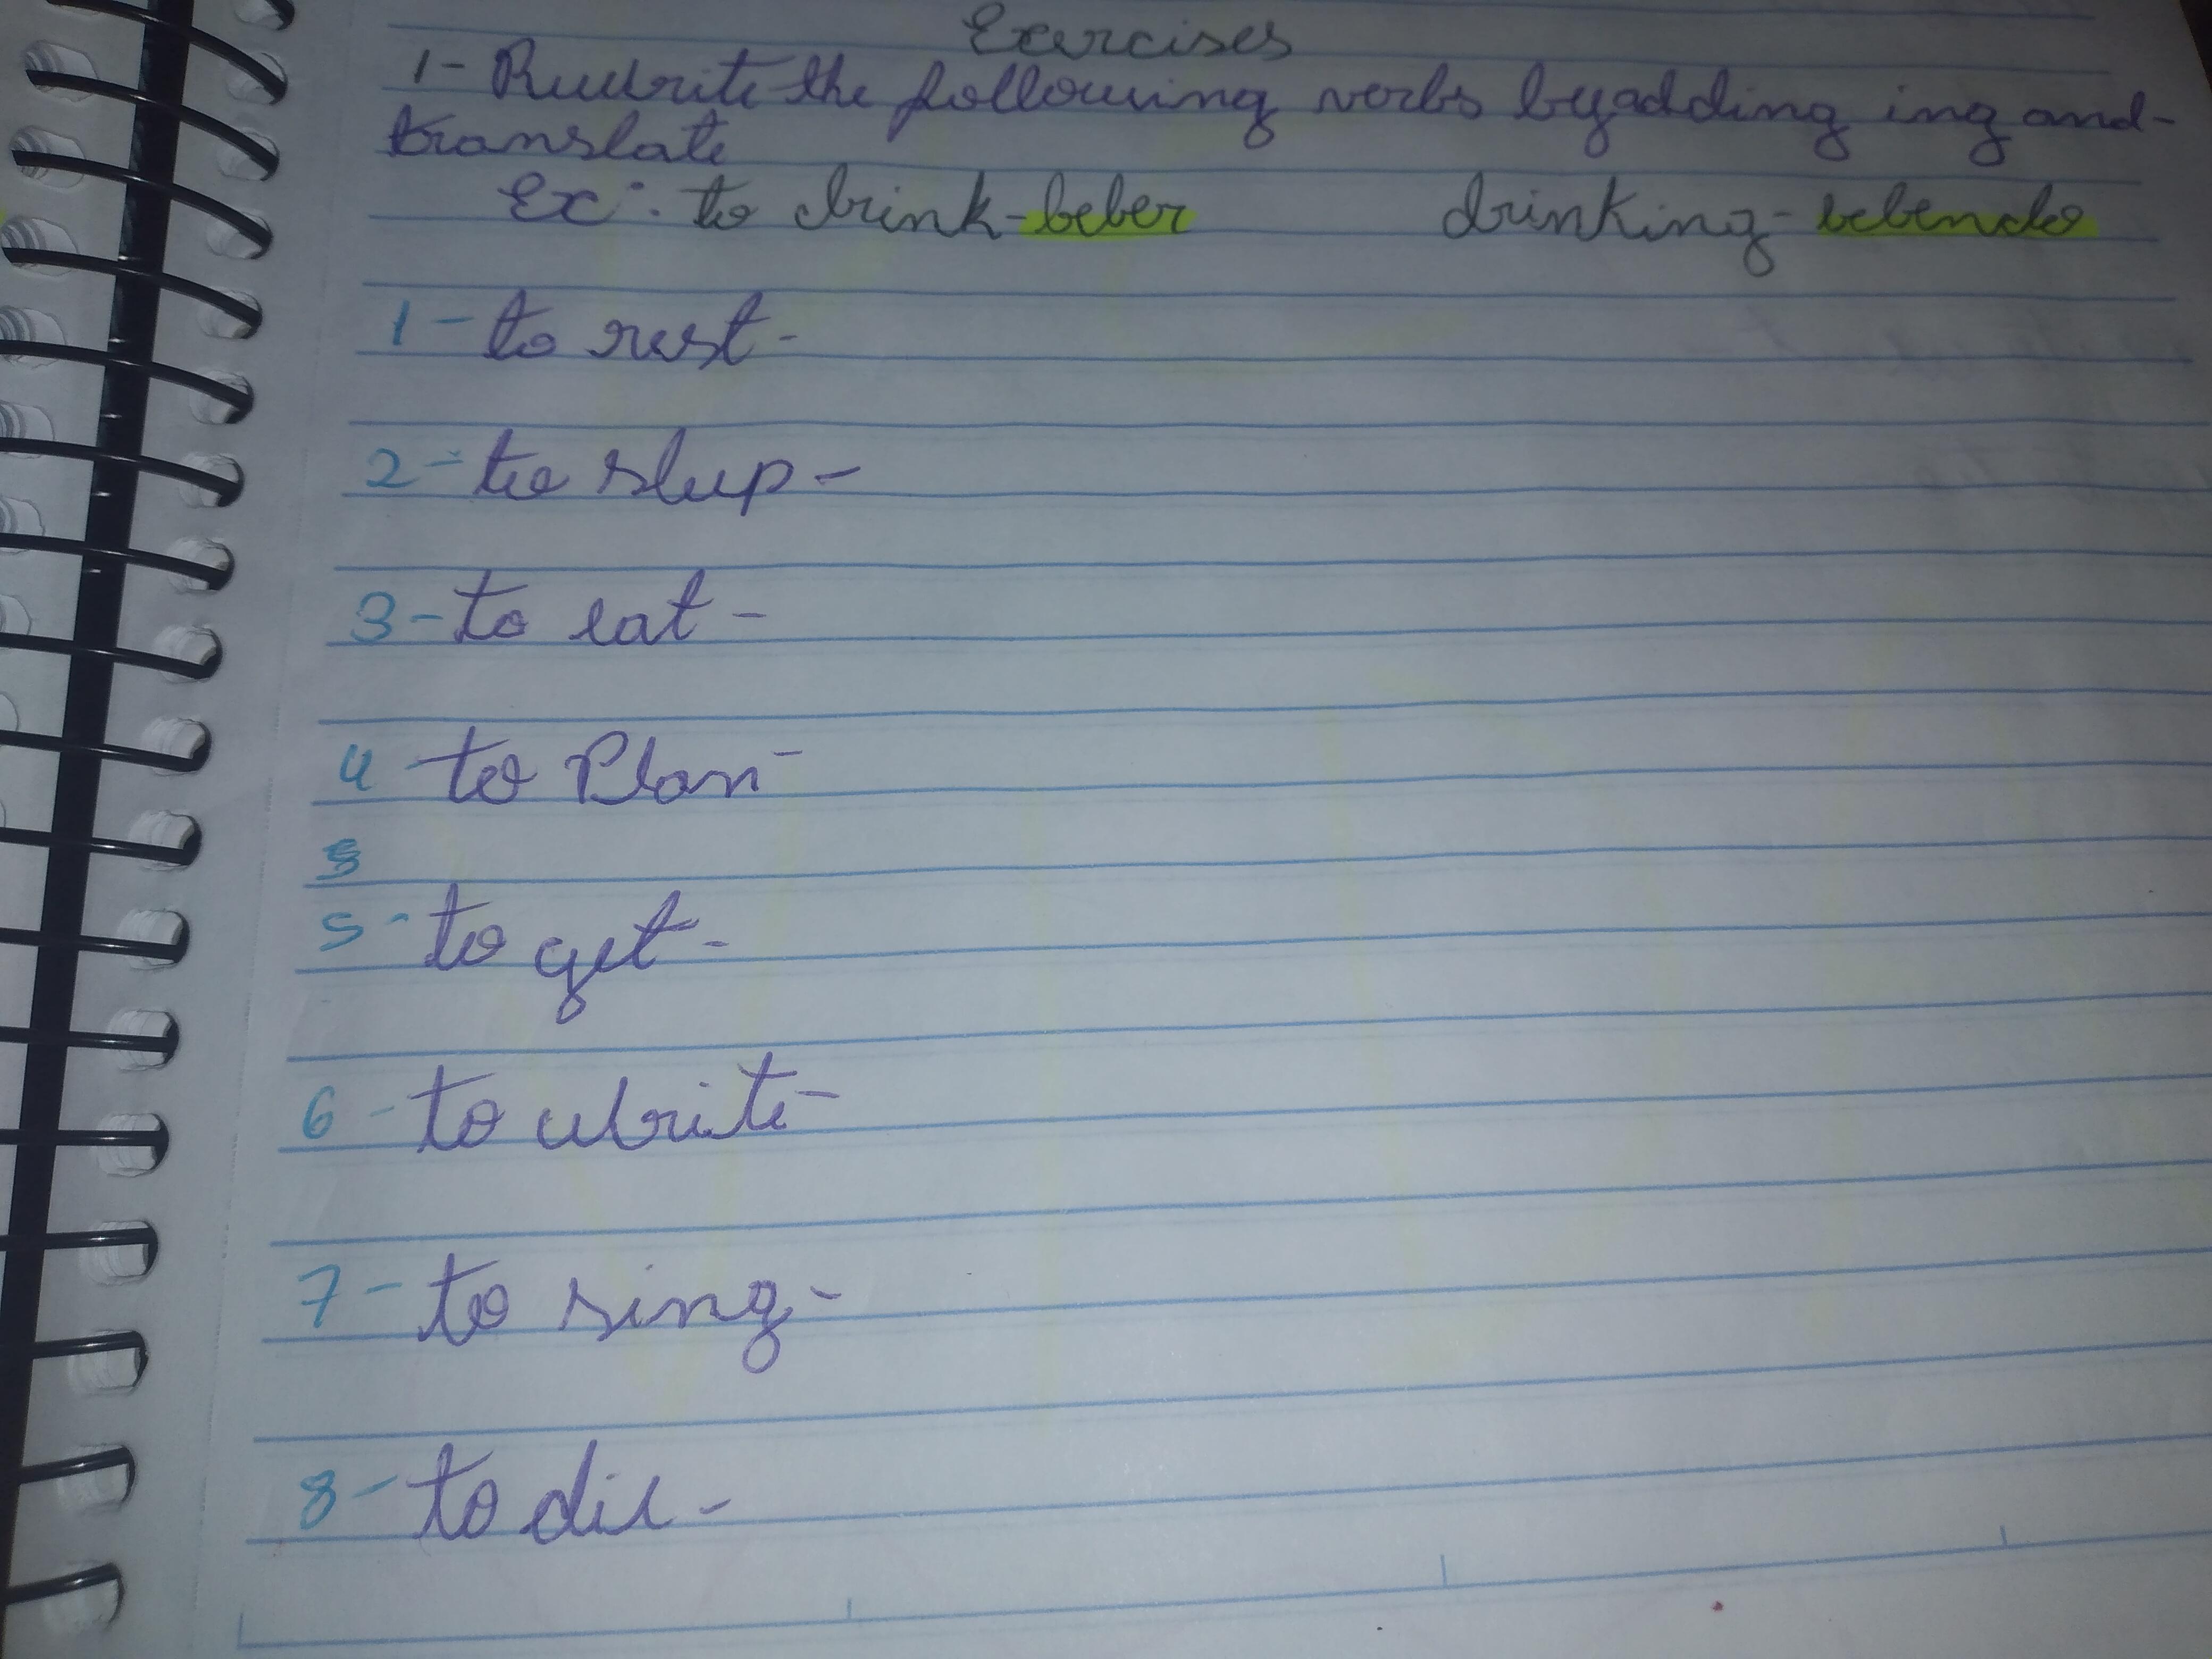 Exercises
1- Rewrite the following verbs by adding ing and-
translate
Ex: to drink-beber drinking-bebendo
1- to rest-
2- to sleep-
3- to eat-
4 to Plan-
5
5- to get-
6- to write-
7- to sing-
8- to die-